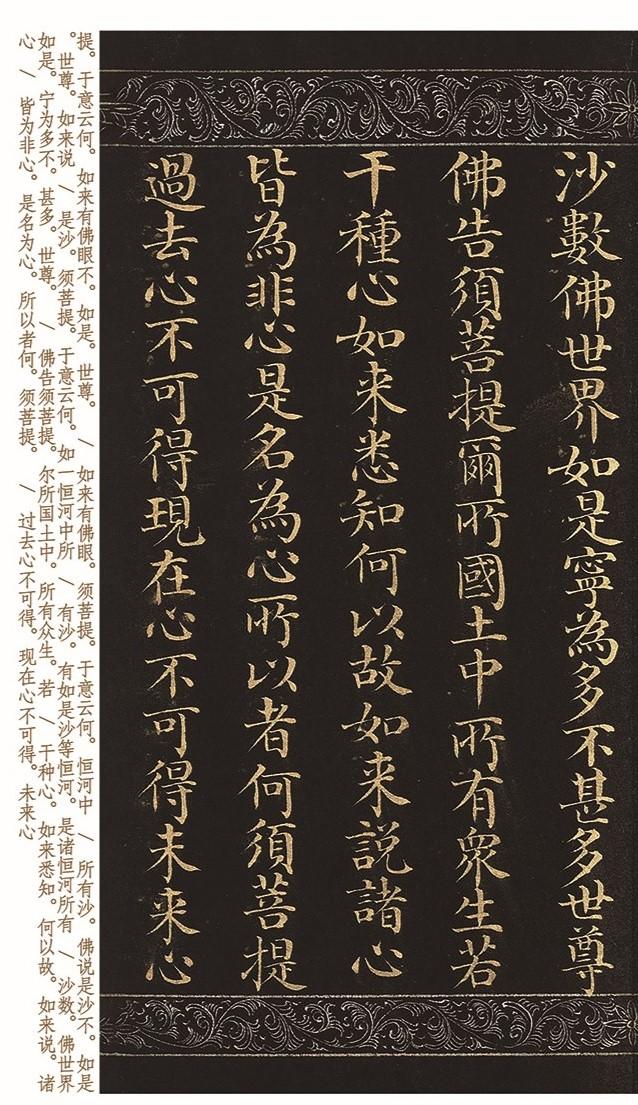 沙數佛世界如是寧為多不甚多世尊
佛告須菩提爾所國土中所有眾生若
干種心如来悉知何以故如来說諸心
皆為非心是名為心所以者何須菩提
過去心不可得現在心不可得未来心
提。于意云何。如来有佛眼不。如是。世尊。/ 如来有佛眼。须菩提。于意云何。恒河中 / 所有沙。佛说是沙不。如是
。世尊。如来说 / 是沙。须菩提。于意云何。如一恒河中所 / 有沙。有如是沙等恒河。是诸恒河所有 / 沙数。佛世界
如是。宁为多不。甚多。世尊。/ 佛告须菩提。尔所国土中。所有众生。若 / 干种心。如来悉知。何以故。如来说。诸
心 / 皆为非心。是名为心。所以者何。须菩提。/ 过去心不可得。现在心不可得。未来心